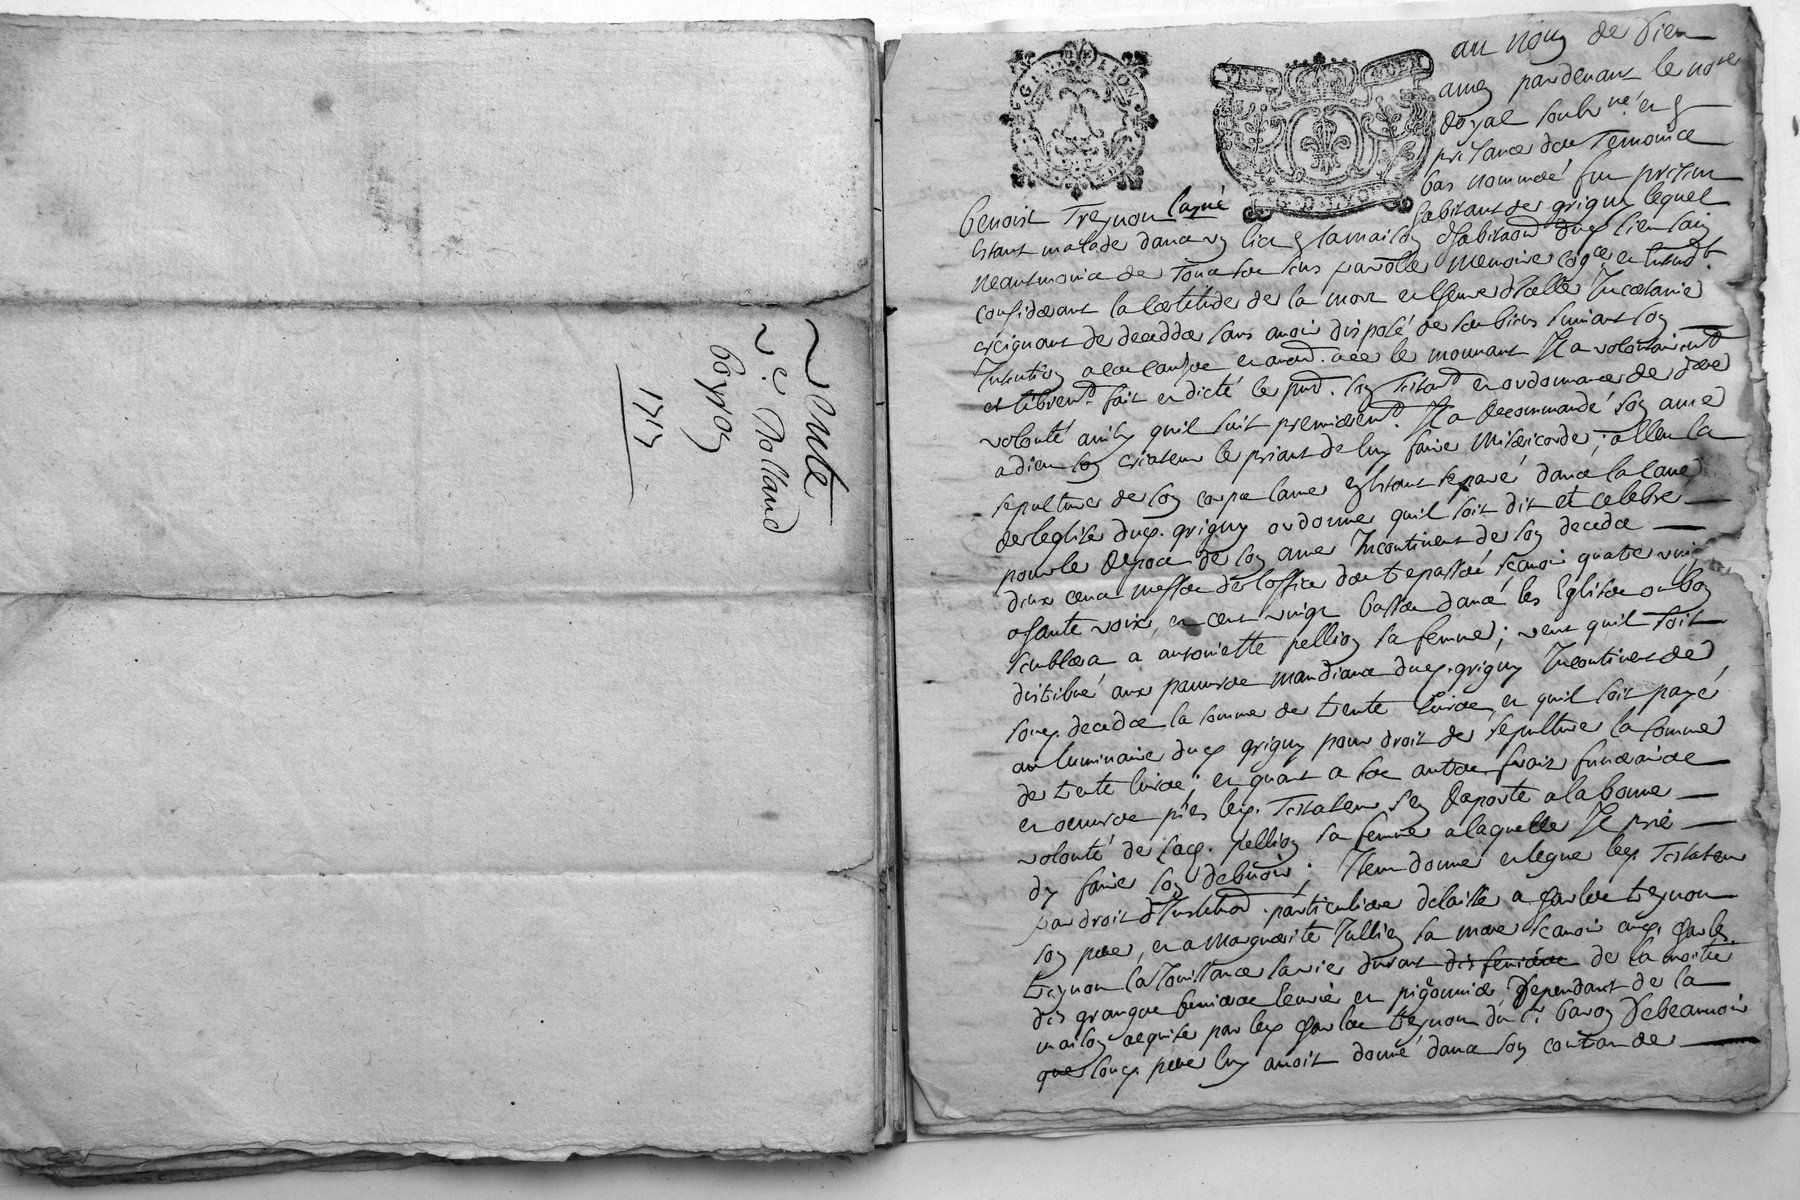 vente
Sr Rolland
1713
GEN DE LION
au nom de Dieu
amen pardevant le notre
Royal soubné en
presance des Temoins
bas nommés fut present
benoist Treynon layné habitant de grigny lequel
estant malade dans un lict la maison d'habitaon dud lieu sain
neantmoins de tous ses sens parolle memoire cogce entend
considerant la certitude de la mort et l'heure d'icelle Incertaine
creignant de decedder sans avoir disposé de ses biens suivant son
Intention a ces causes le mouvant Il a volontairemt
et libremt fait et dicté le put son testamt et ordonnance de dre
volonté ainsy quil suit premieremt Il a Recommandé son ame
a dieu son createur le priant de luy faire Misericorde ; alleu la
sepulture de son corps lame estant separé dans la cave
de leglise dud grigny ordonne quil soit dit et celebré
pour le Repos de son ame Incontinent de son deceds
deux cens messes de loffice des trepasses scavoir quatre vin
a haute voix, et cent vingt basses dans les Eglises ou bon
semblera a antoinette pellion sa femme ; veut quil soit
distribué aux pauvres mandians dud grigny Incontinent
soud deceds la somme de trente livres, et quil soit payé
au luminaire dud grigny pour droit de sepulture la somme
de trente livres ; et quant a ses autres frais funeraires
et oeuvres pies led Testateur s'en Raporte a la bonne
volonté de lad pellion sa femme a laquelle Il prie
dy faire son debvoir ; Item donne et legue led Testateur
par droit d'Institaon particuliere delaisse a Charles treynon
son pere, et a Marguerite Jullien sa mere scavoir aud Charles
treynon la Jouissance sa vie durant de la moitié
des granges fenieres ecurie et pigonnier Dependant de la
maison acquise par led Charles treynon du sr baron De beauvoir
que soud pere luy avoit donné dans son contract de